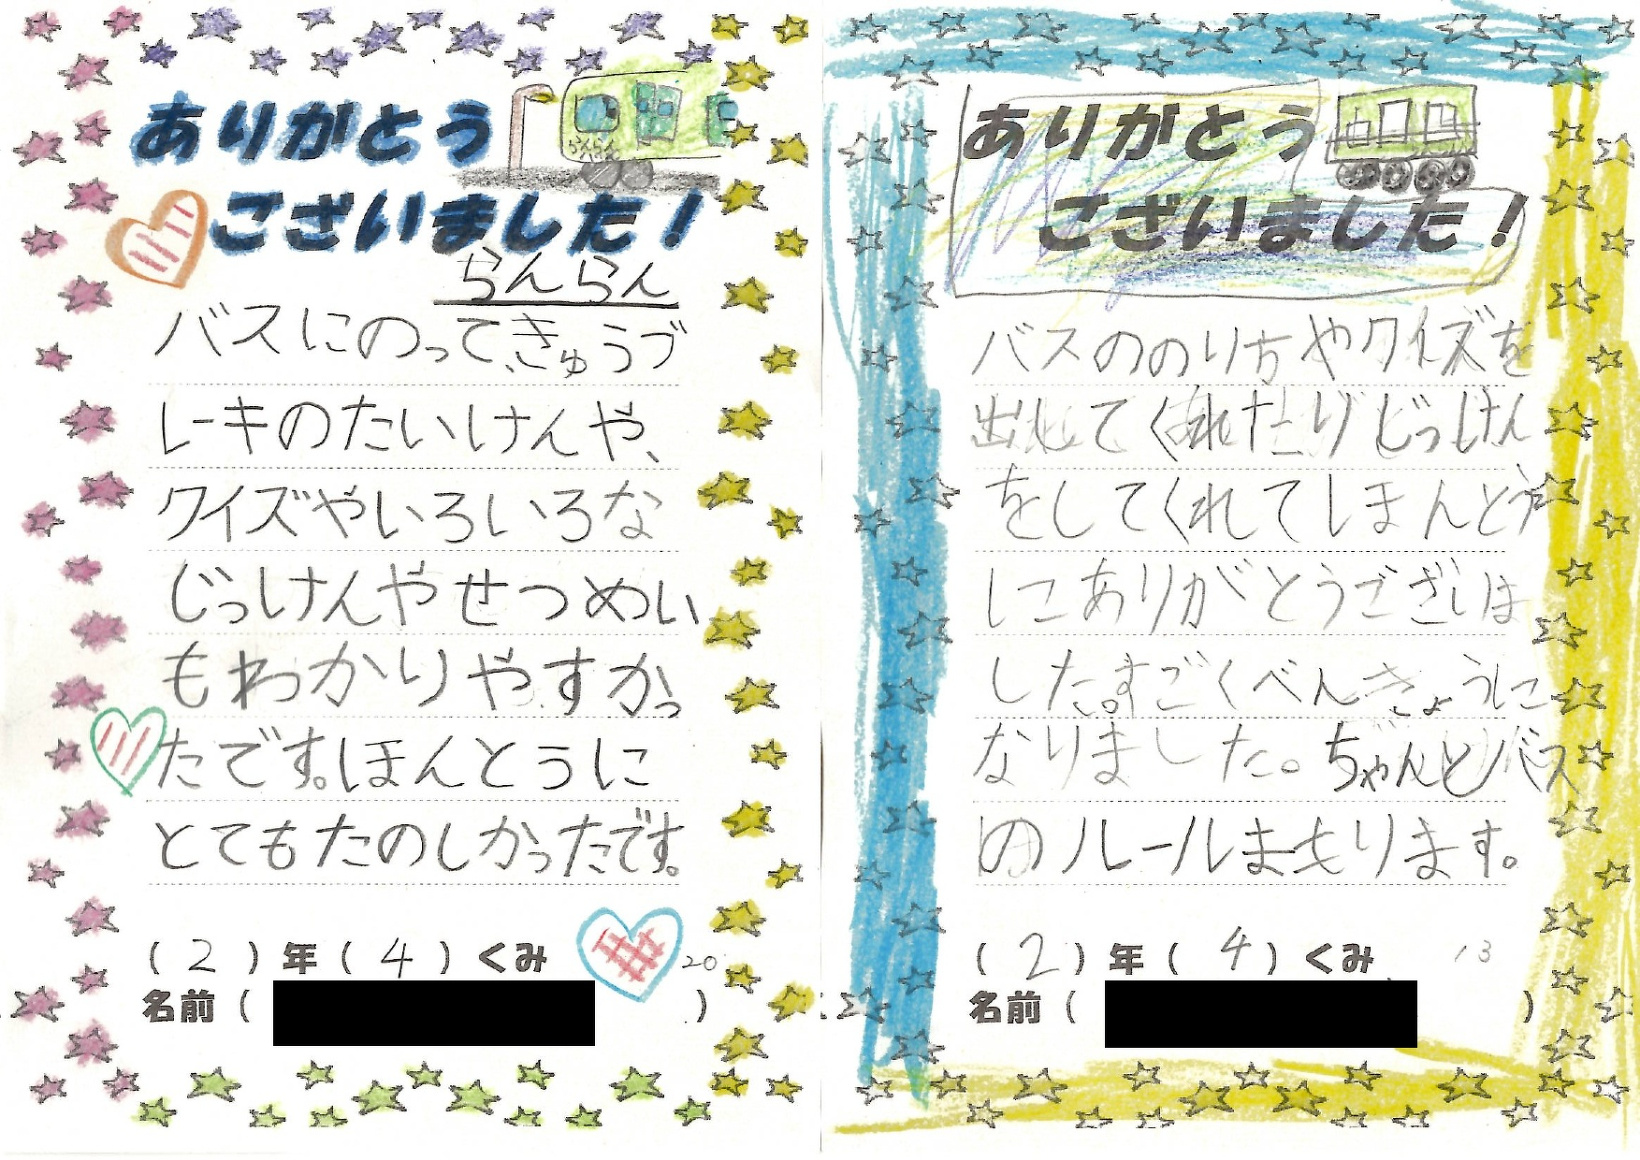 ありがとう
らんらん
ございました!
らんらん
バスにのって、きゅうブ
レーキのたいけんや、
クイズやいろいろな
じっけんやせつめい
もわかりやすかっ
たです。ほんとうに
とてもたのしかったです。
(2)年(4)くみ
20
名前( )
ありがとう
ございました!
バスののり方やクイズを
出してくれたりじっけん
をしてくれてしまんとう
にありがとうございは
した。すごくべんきょうに
なりました。ちゃんとバス
のルールまもります。
(2)年(4)くみ
13
名前( )